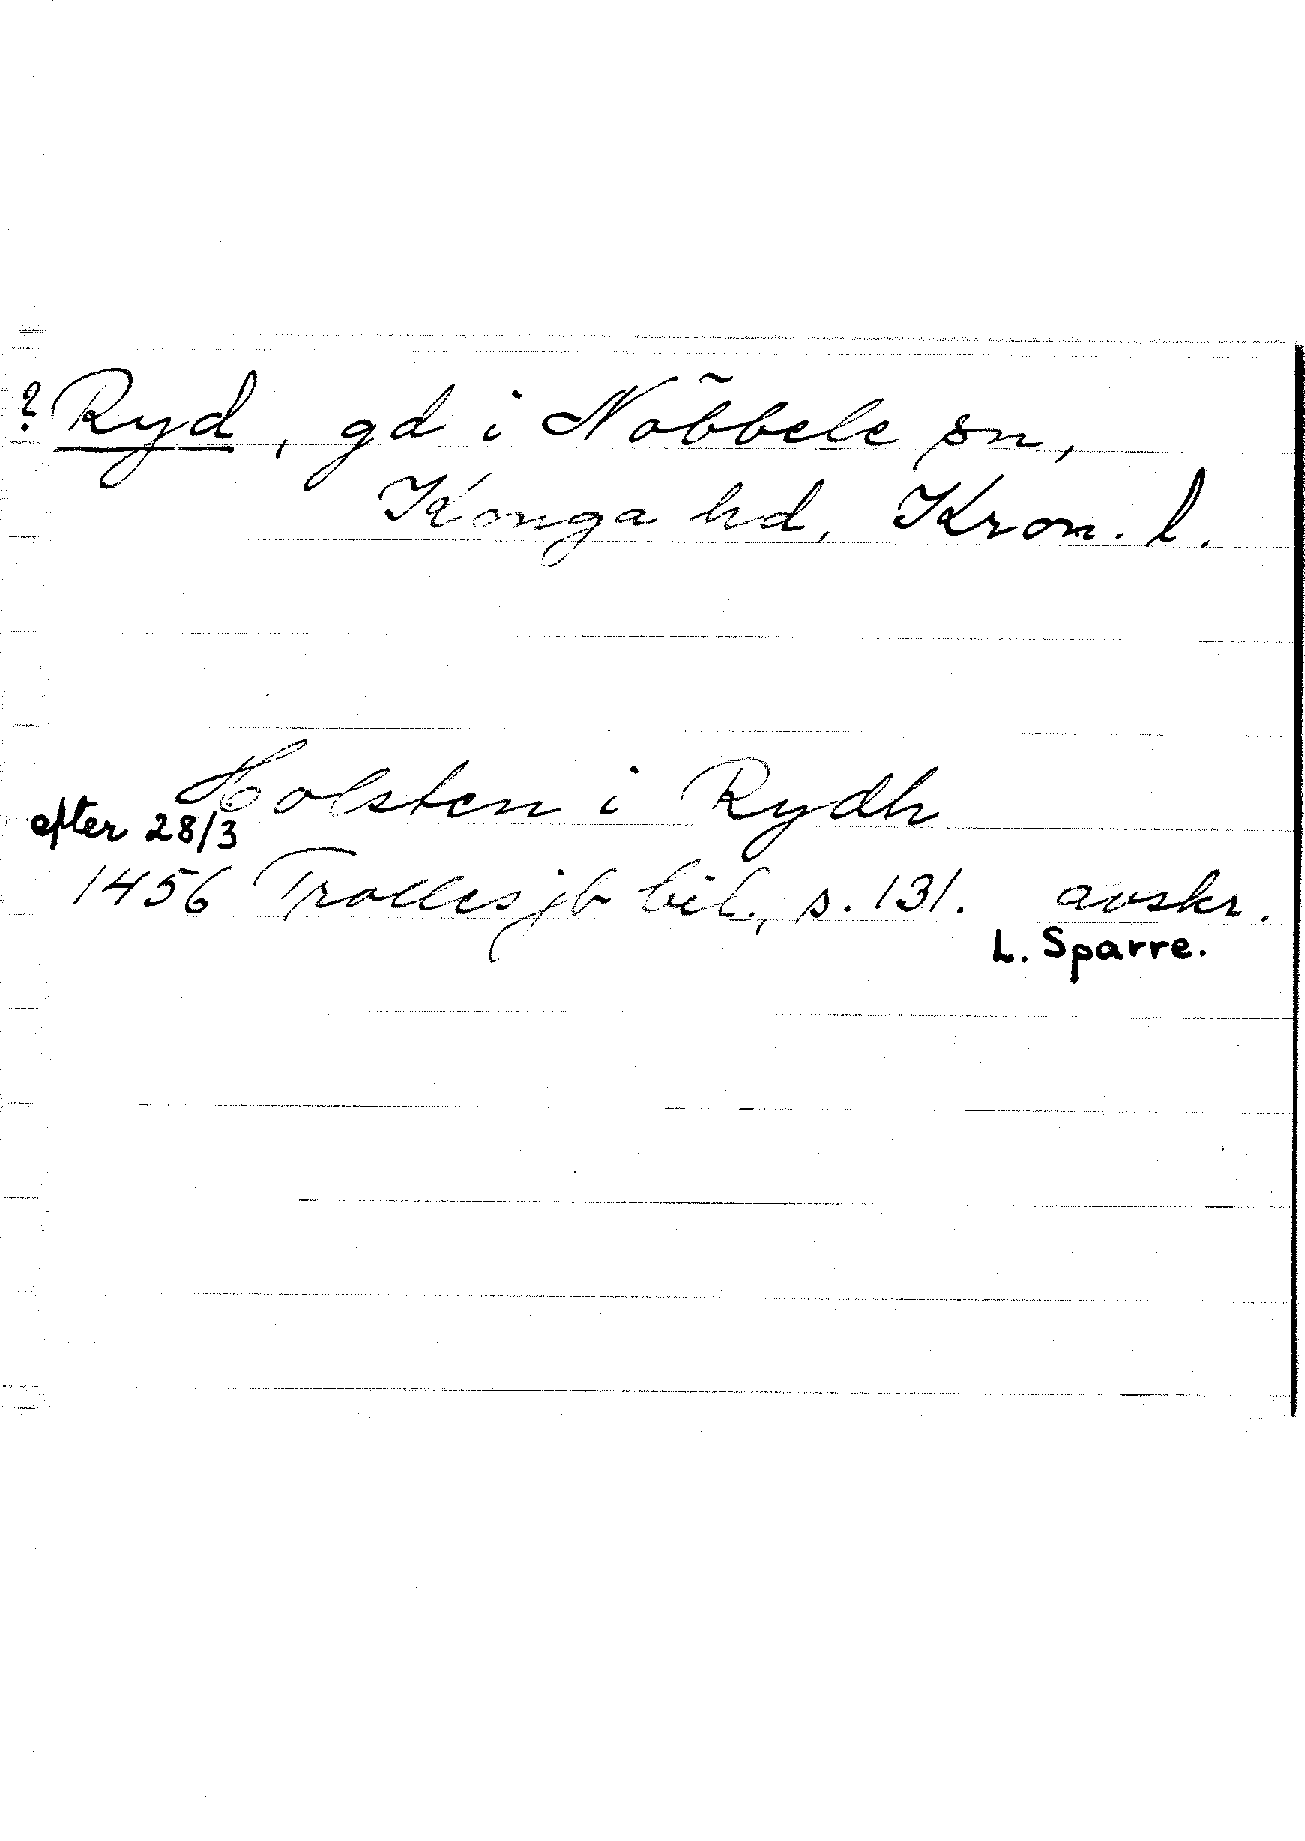 ? Ryd, gd i Nöbbele sn,
Konga hd, Kron. l.
Holsten i Rydh
efter 28/3
1456 Trolles jb bil., s. 131. avskr.
L. Sparre.